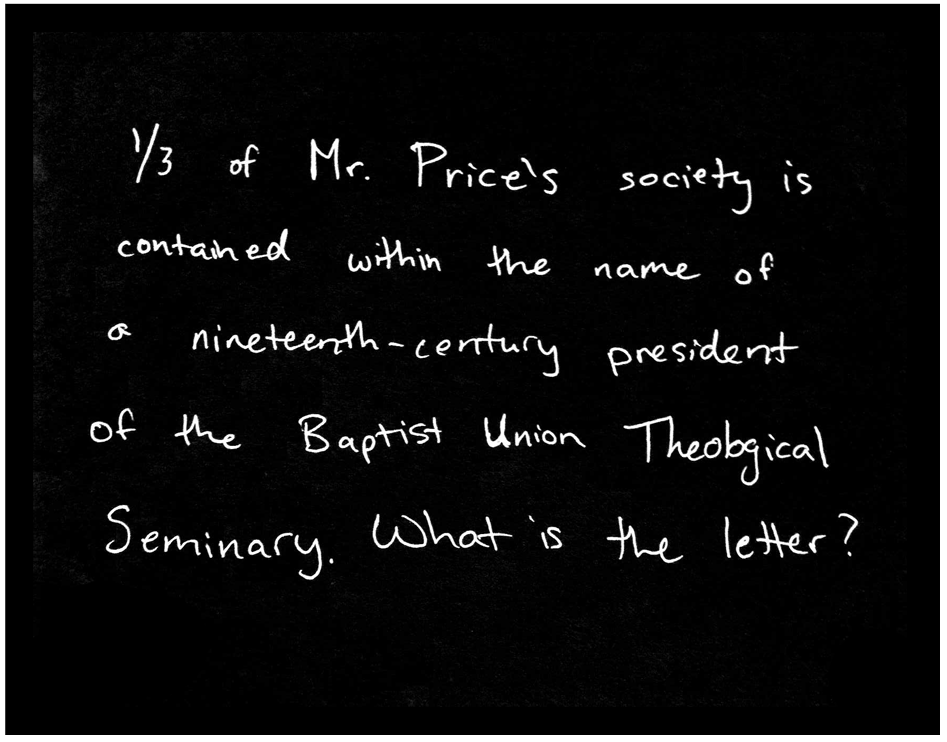 1/3 of Mr. Price's society is
contained within the name of
a nineteenth-century president
of the Baptist Union Theological
Seminary. What is the letter?